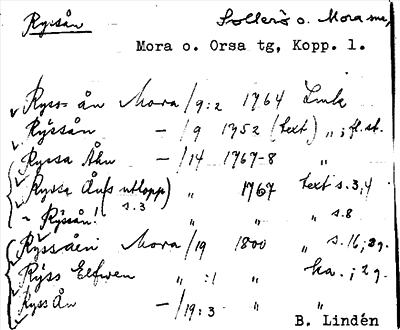 Ryssån Sollerö o. Mora snr,
Mora o. Orsa tg, Kopp. l.
Ryss-ån Mora/9:2 1764 Lmk
Ryssån -/9 1752 (text) „; fl.st.
Ryssa Åhn -/14 1767-8 „
Ryssa Åns utlopp) „ 1767 text s.3,4
~ Ryssån! s.3 „ „ „ s.8
Ryssåen Mora/19 1800 „ s.16; 2g.
Ryss Elfwen „ :1 „ ka.; 2g.
Ryss Ån -/19:3 „ „
B. Lindén